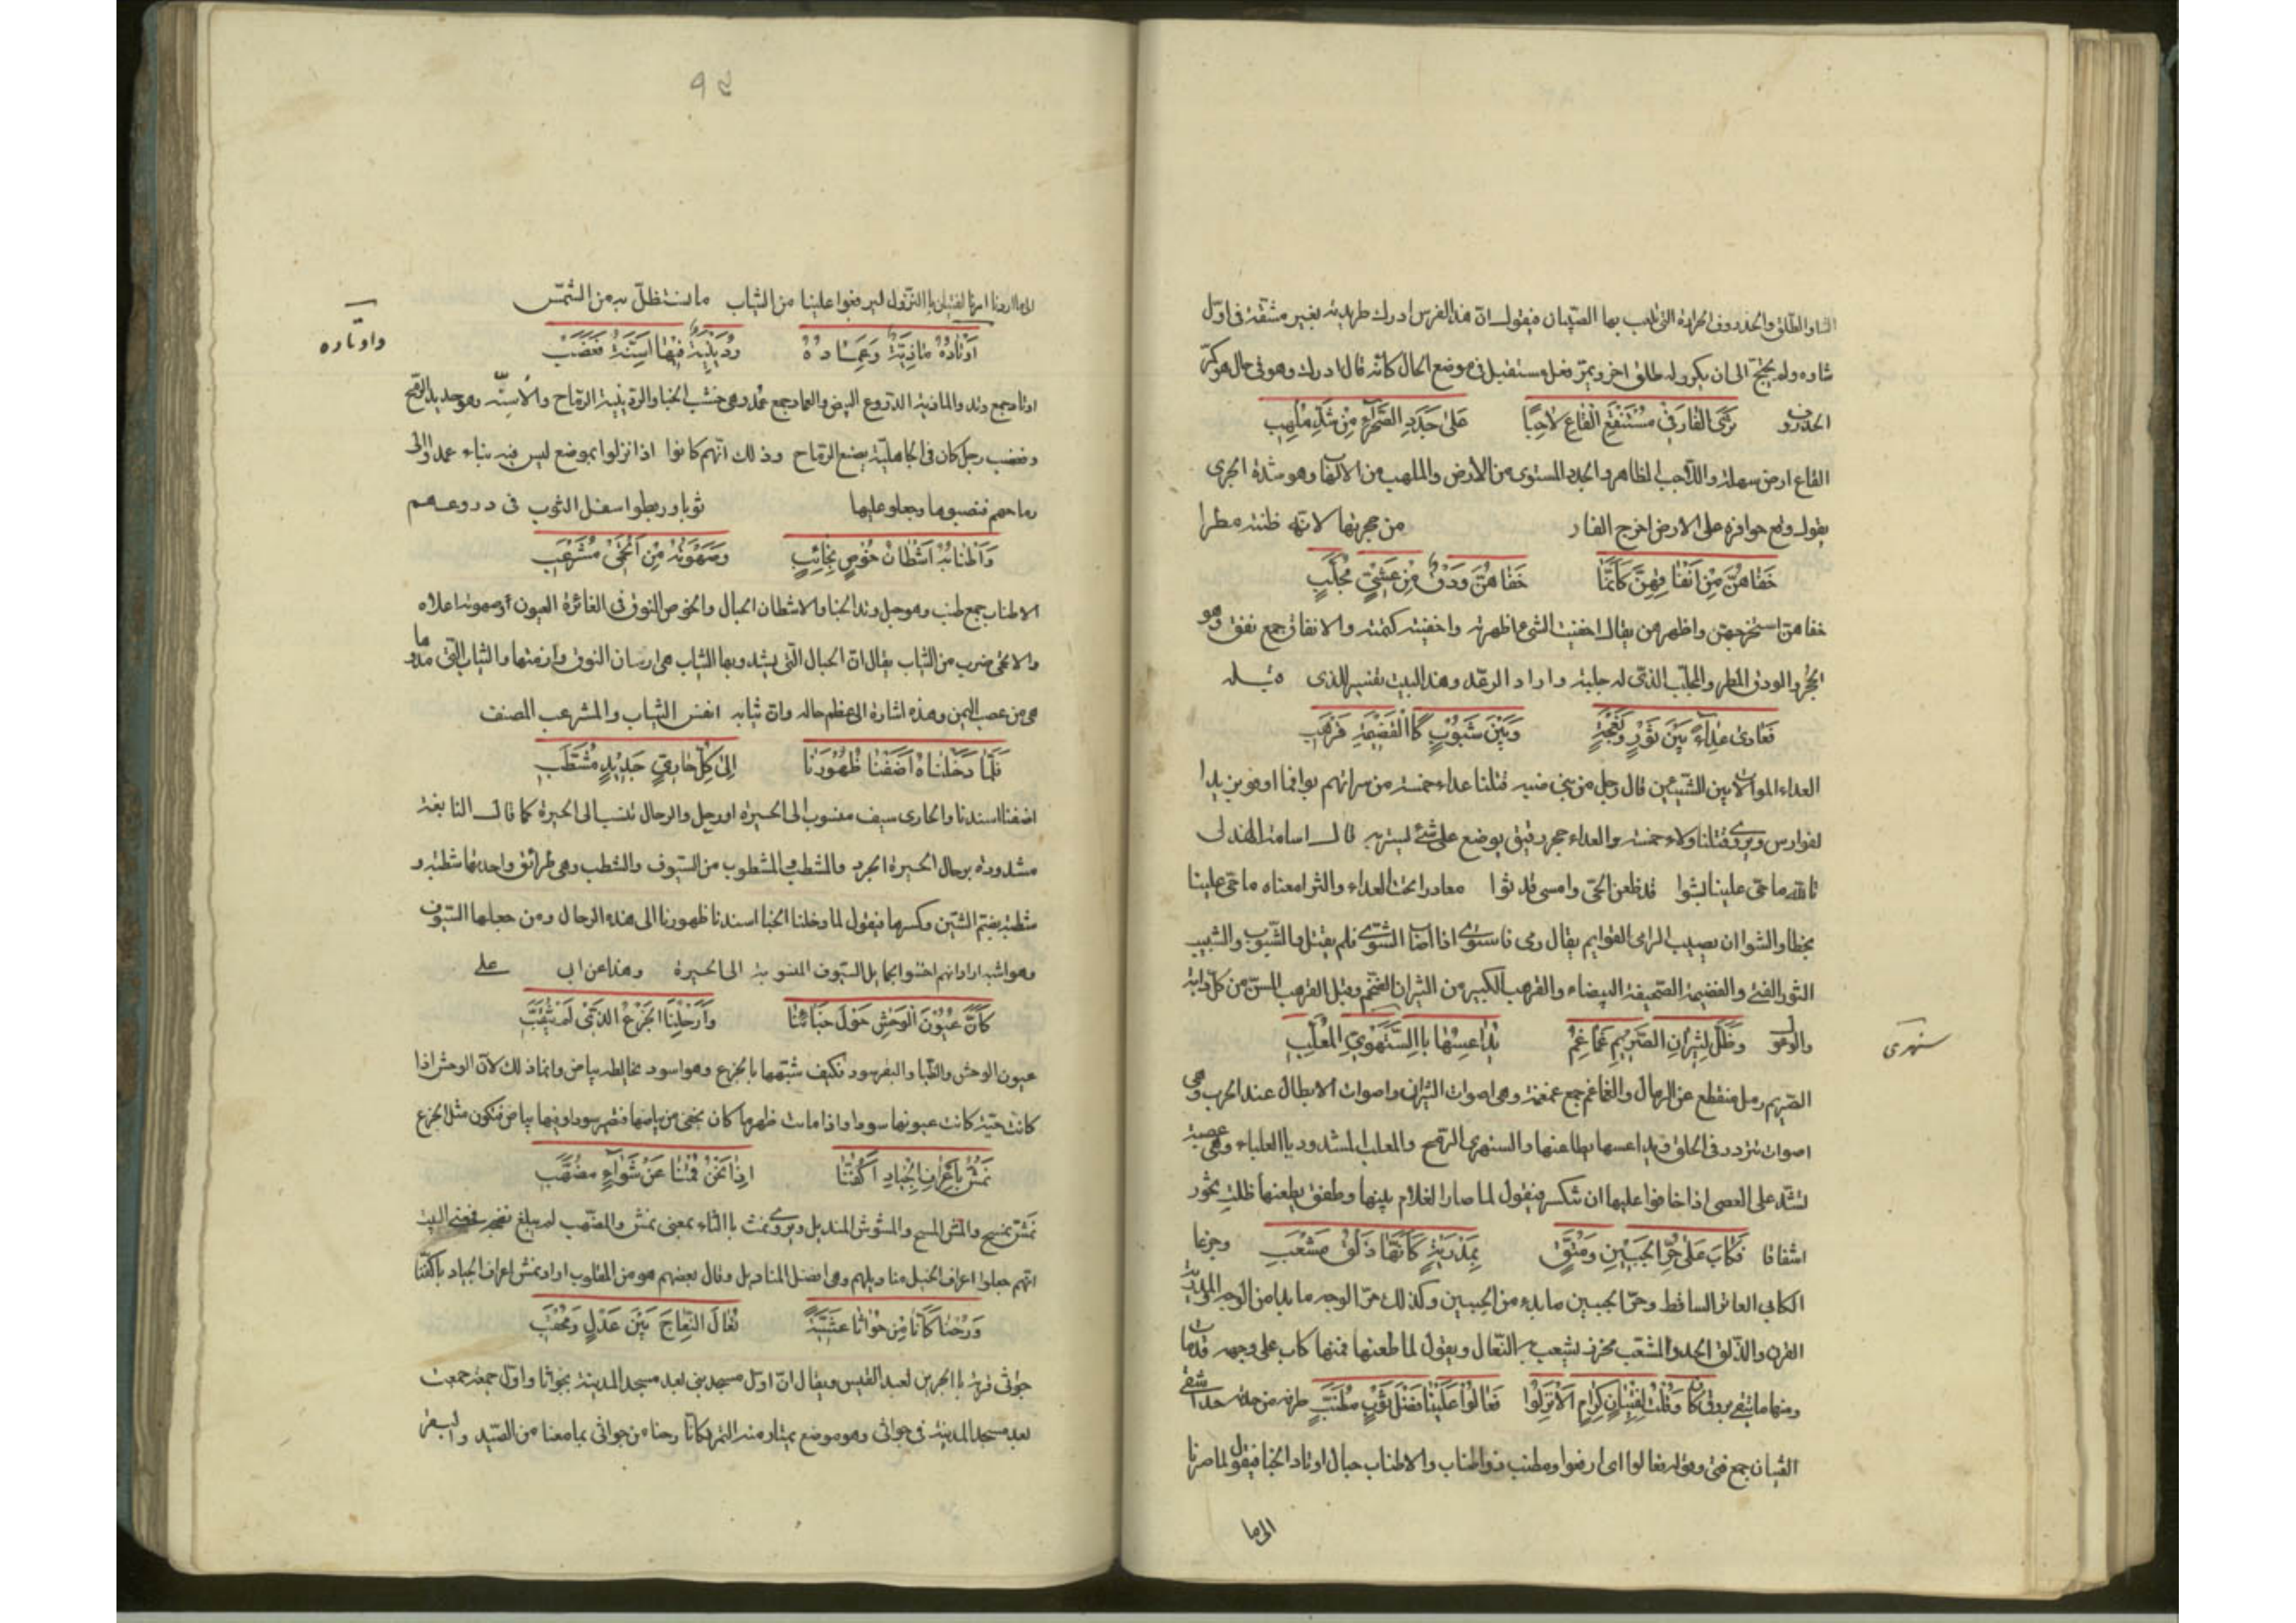 الشاو الطلق والخذروف الخرارة التى يلعب بها الصبيان فيقول ان هذا الفرس ادرك طريدته بغير مشقة فى اول
شاوه ولم يحتج الى ان يكر وله طلق اخر ويمر فعل مستقبل فى موضع الحال كانه قال ادرك وهو فى حال هو كر
الخذروف تَرَى الفَارَ فِي مُسْتَنْقَعِ القَاعِ لَاحِبًا عَلَى جَدَدِ الصَّحْرَاءِ مِنْ شَدِّ مُلْهِبِ
القاع ارض سهلة واللاحب الظاهر والجدد المستوى من الأرض والملهب من الالهاب وهو شدة الجرى
يقول وقع حوافره على الارض اخرج الفار من حجرتها لانه ظنه مطرا
خَفَاهُنَّ مِنْ اَنْفَاقِهِنَّ كَاَنَّمَا خَفَاهُنَّ وَدْقٌ مِنْ عَشِيٍّ مُجَلِّبِ
خفاهن استخرجهن واظهرهن يقال اخفيت الشئ اظهرته واخفيته كتمته والانفاق جمع نفق وهو
الجحر والودق المطر والمجلب الذى له جلبة واراد الرعد وهذا البيت تفسير للذى قبله
فَعَادَى عِدَاءً بَيْنَ ثَوْرٍ وَنَعْجَةٍ وَبَيْنَ شَبُوبٍ كَالْقَضِيْمَةِ قَرْهَبِ
العداء الموالات بين الشيئين قال رجل من بنى ضبه قتلنا عداء خمسة من سراتهم
لفوارس ويروى قتلنا ولاء خمسة والعداء حجر رقيق يوضع على شئ ليستر به قال اسامة الهذلى
تالله ما حتى علينا الشوا قد ظعن الحى وامسى قد ثوا معادرا تحت العداء والثرا معناه ما حتى علينا
بخطا والشوا ان يصيب الرامى القوايم يقال رمى فاشوى اذا اصاب الشوى فلم يقتل والشبوب والشبيب
الثور الفتى والقضيمة الصحيفة البيضاء والقرهب الكبير من الثيران الضخم وقيل القرهب المسن من كل دابة
وَظَلَّ لِثِيرَانِ الصَّرِيمِ غَمَاغِمُ يُدَاعِسُهَا بِالسَّمْهَرِيِّ المُعَلَّبِ
سمهرى
الصريم رمل منقطع عن الرمال والغماغم جمع غمغمة وهى اصوات الثيران واصوات الابطال عند الحرب وهى
اصوات تردد فى الحلق ويداعسها يطاعنها والسمهرى الرمح والمعلب المشدود بالعلباء وهى عصبة
تشد على العصى اذا خافوا عليها ان تنكسر فيقول لما صار الغلام بينها وطفق يطعنها ظلت تخور
اشفاقا وجزعا فَكَابٍ عَلَى حُرِّ الجَبِيْنِ وَمُتَّقٍ بِمَدْرِيَةٍ كَاَنَّهَا ذَلْقُ مَشْعَبِ
الكابى العاثر الساقط وحر الجبين ما بدء من الجبين وكذلك حر الوجه ما بدا من الوجه والمدرية
القرن والذلق الحد والمشعب مخرز يشعب به النعال ويقول لما طعنها فمنها كاب على وجهه قد مات
ومنها ما يتقى بروقه وَقُلْتُ لِفِتْيَانٍ كِرَامٍ اَلَا انْزِلُوا فَعَالُوا عَلَيْنَا فَضْلَ ثَوْبٍ مُطَنَّبِ
الفتيان جمع فتى وقوله فعالوا اى ارفعوا ومطنب ذو اطناب والاطناب حبال اوتاد الخبا فيقول لما صرنا
الى ما
٩٤
الى ما اردنا امرنا الفتيان بالنزول ليرفعوا علينا من الثياب ما نستظل به من الشمس
اَوْتَادُهُ مَاذِيَّةٌ وَعِمَادُهُ رُدَيْنِيَّةٌ فِيْهَا اَسِنَّةُ قَعْضَبِ
واوتاده
اوتاد جمع وتد والماذية الدروع البيض والعماد جمع عمد وهى خشب الخبا والردينية الرماح والاسنه وهو حديد الرمح
وقعضب رجل كان فى الجاهلية يصنع الرماح وذلك انهم كانوا اذا نزلوا بموضع ليس فيه بناء عمدوا الى
رماحهم فنصبوها وجعلو عليها ثوبا وربطوا اسفل الثوب فى دروعهم
وَاَطْنَابُهُ اَشْطَانُ خُوْصٍ نَجَائِبٍ وَصَهْوَتُهُ مِنْ اَتْحَمِىٍّ مُشَرْعَبِ
الاطناب جمع طنب وهو حبل وتد الخبا والاشطان الحبال والخوص النوق فى الغائرة العيون وصهوته اعلاه
والاتحمى ضرب من الثياب يقال ان الحبال التى يشدو بها الثياب هى ارسان النوق وازمتها والثياب التى مدو
هى من عصب اليمن وهذه اشارة الى عظم حاله وان ثيابه انفس الثياب والمشرعب المصنف
فَلَمَّا دَخَلْنَاهُ اَضَفْنَا ظُهُوْرَنَا اِلَى كُلِّ حَارِىٍّ جَدِيْدٍ مُشَطَّبِ
اضفنا اسندنا والحارى سيف منسوب الى الحيرة او رحل والرحال تنسب الى الحيرة كما قال النابغة
مشدودة برحال الحيرة الجرد والمشطب المشطوب من السيوف والشطب وهى طرائق واحدتها شطبة و
شطبة بضم الشين وكسرها فيقول لما دخلنا الخبا اسندنا ظهورنا الى هذه الرحال ومن جعلها السيوف
وهو اشبه اراد انهم احتبوا بحمايل السيوف المنسوبة الى الحيرة وهذا عن ابى على
كَاَنَّ عُيُوْنَ الْوَحْشِ حَوْلَ خِبَائِنَا وَاَرْحُلِنَا الجَزْعُ الَّذِى لَمْ يُثَقَّبِ
عيون الوحش والظبا والبقر سود فكيف شبهها بالجزع وهو اسود يخالطه بياض وانما ذلك لان الوحش اذا
كانت حية كانت عيونها سودا واذا ماتت ظهر ما كان يخفى من بياضها فتصير سودا وفيها بياض فتكون مثل الجزع
نَمُشُّ بِاَعْرَافِ الْجِيَادِ اَكُفَّنَا اِذَا نَحْنُ قُمْنَا عَنْ شِوَاءٍ مُضَهَّبِ
نمش نمسح والمش المسح والمشوش المنديل ويروى نمث بالثاء بمعنى نمش والمضهب لم يبلغ نضجه
انهم جعلوا اعراف الخيل مناديلهم وهى افضل المناديل وقال بعضهم هو من المقلوب اراد نمش اعراف الجياد باكفنا
وَرُحْنَا كَاَنَّا مِنْ جُوَاثَا عَشِيَّةً نُعَالِى النِّعَاجَ بَيْنَ عِدْلٍ وَمُحْقَبِ
جواثى قرية بالبحرين لعبد القيس ويقال ان اول مسجد بنى بعد مسجد المدينة بجواثا واول جمعة جمعت
بعد مسجد المدينة فى جواثى وهو موضع يمتار منه التمر فكانا رحنا من جواثى بما معنا من الصيد والبقر